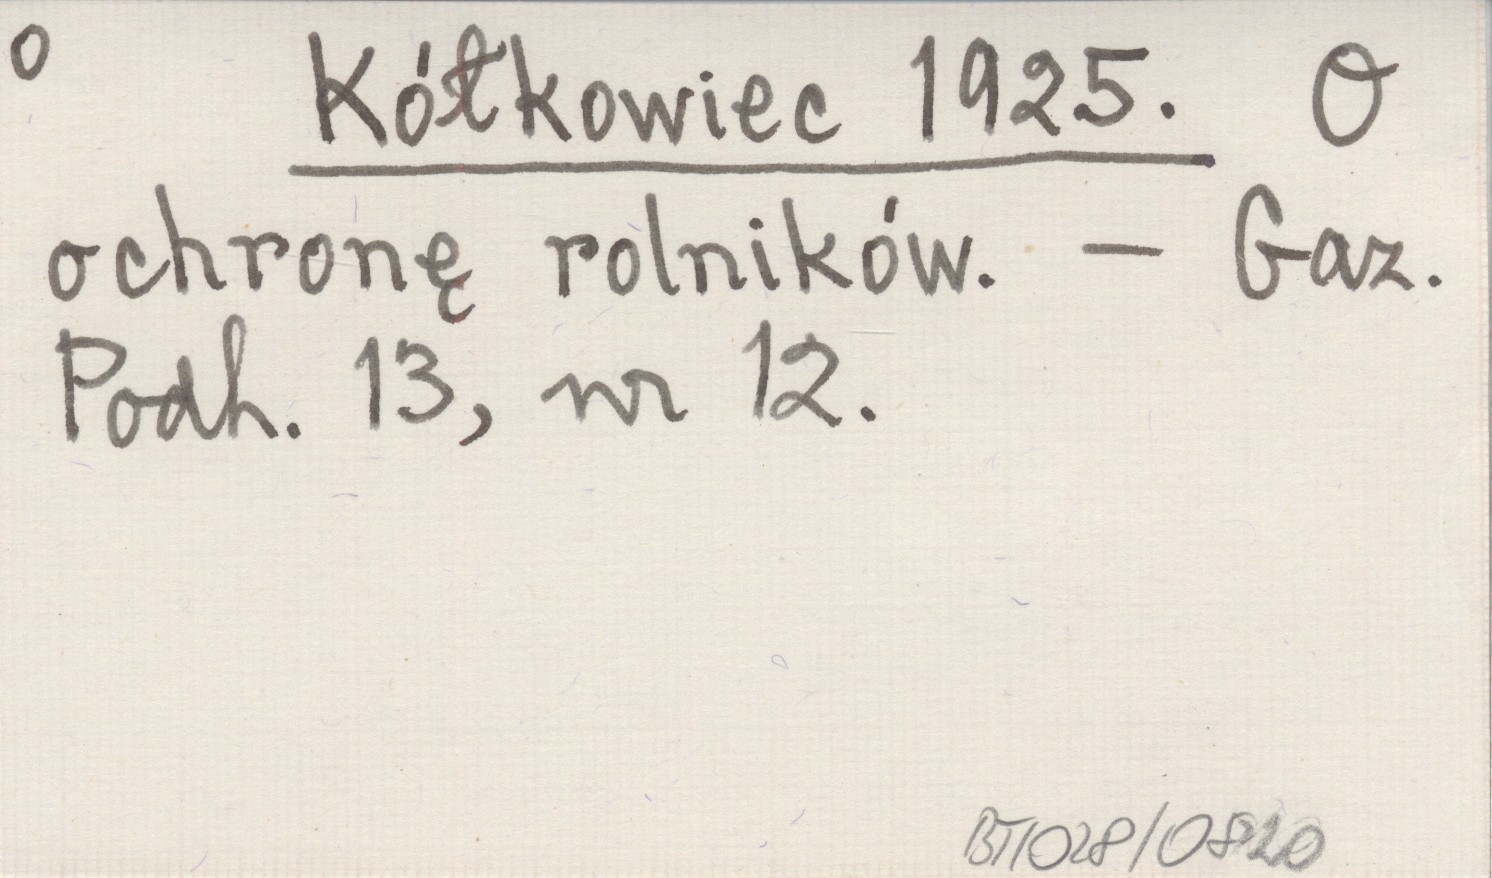 o Kółkowiec 1925. O
ochronę rolników. – Gaz.
Podh. 13, nr 12.
BT/028/0820